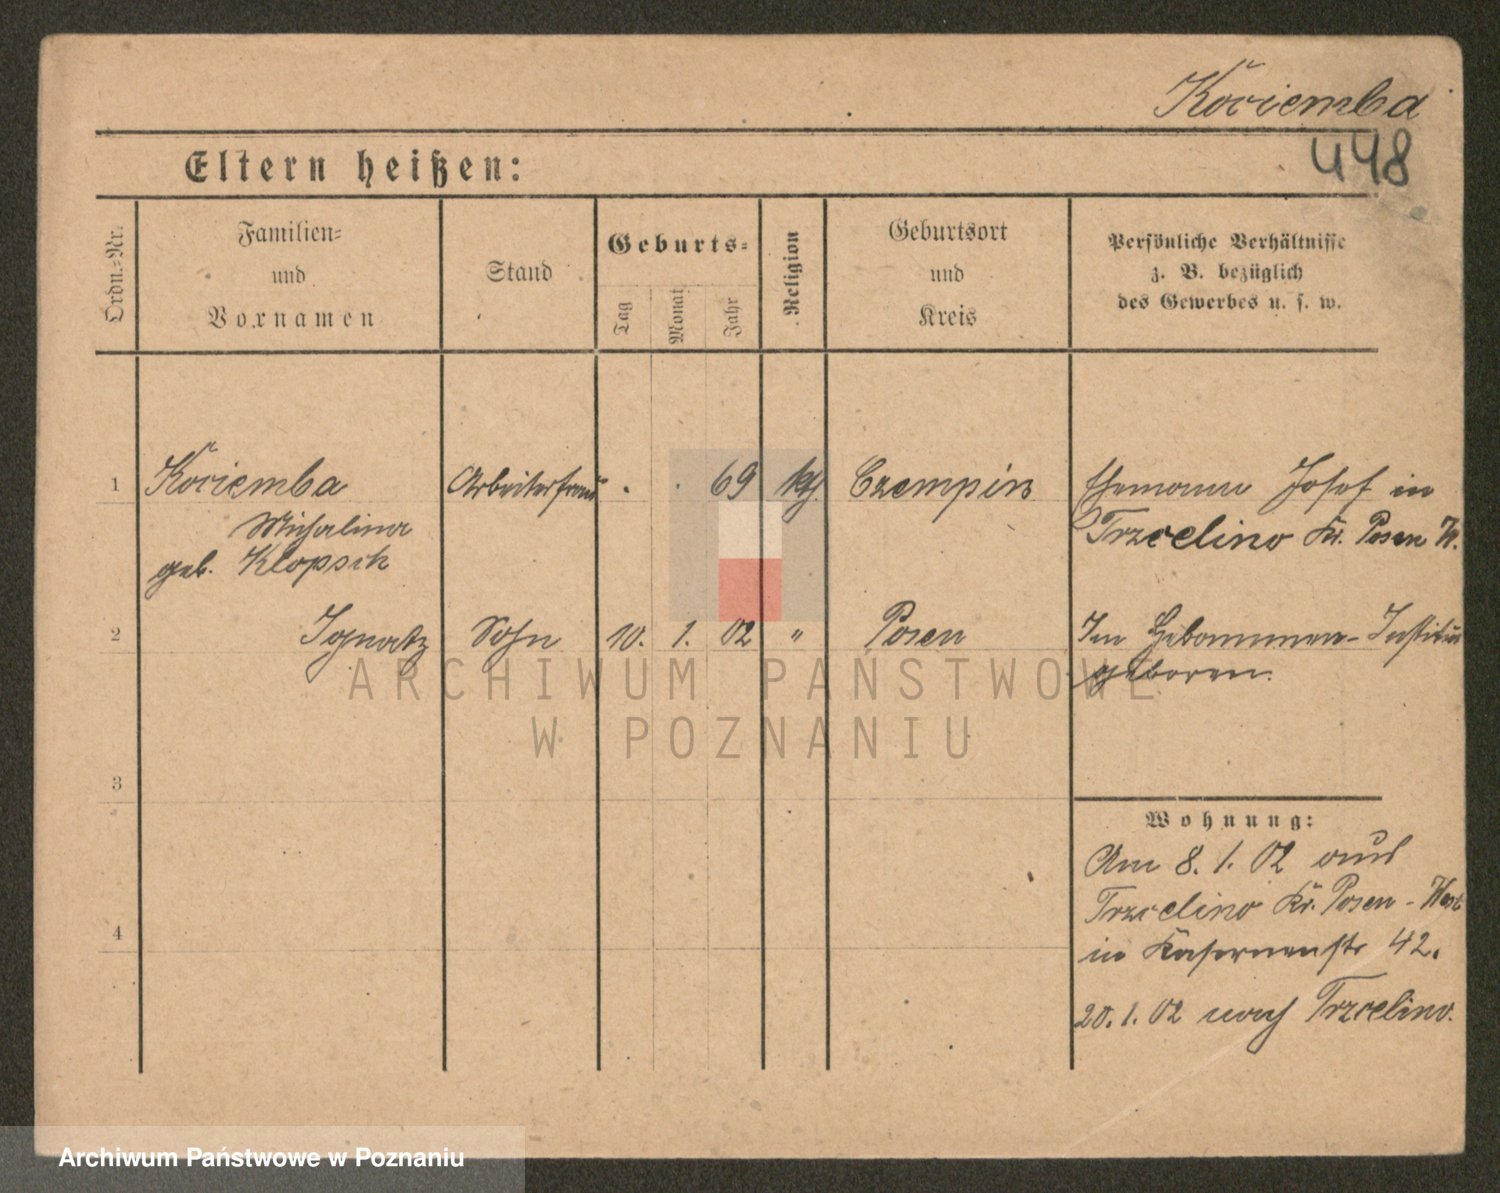 Kociemba
448
Eltern heißen:
Ordn.=Nr.
Familien=
und
Vornamen
Stand
Geburts=
Tag
Monat
Jahr
Religion
Geburtsort
und
Kreis
Persönliche Verhältnisse
z. B. bezüglich
des Gewerbes u. s. w.
1 Kociemba Arbeiterfrau . . 69 kth Czempin Ehemann Josef in
Michalina Trzcelino Kr. Posen W.
geb. Klopsch
2 Ignatz Sohn 10. 1. 02 " Posen Im Hebammen-Institut
geboren.
3
Wohnung:
Am 8. 1. 02 aus
Trzcelino Kr. Posen - West
4
in Kasernenstr 42.
20. 1. 02 nach Trzcelino.
ARCHIWUM PAŃSTWOWE
W POZNANIU
Archiwum Państwowe w Poznaniu